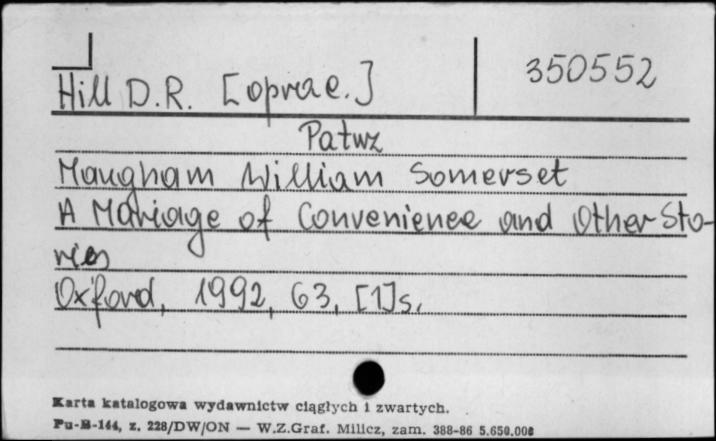 Hill D.R. [oprac.] 350552
Patrz
Maugham William Somerset
A Mariage of Convenience and Other Sto-
ries
Oxford, 1992, 63, [1]s.
Karta katalogowa wydawnictw ciągłych i zwartych.
Pu-B-144, z. 228/DW/ON — W.Z.Graf. Milicz, zam. 388-86 5.650.000